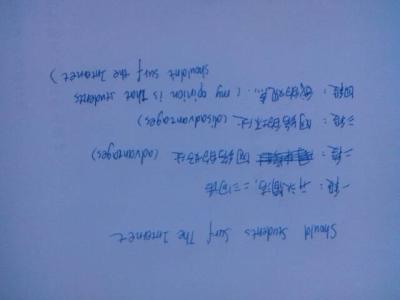 Should students surf The Internet
一段：开头简洁，二三句话
二段：网络的好处 (advantages)
三段：网络的坏处 (disadvantages)
四段：我的观点.... ( my opinion is that students
shouldnt surf the Internet )